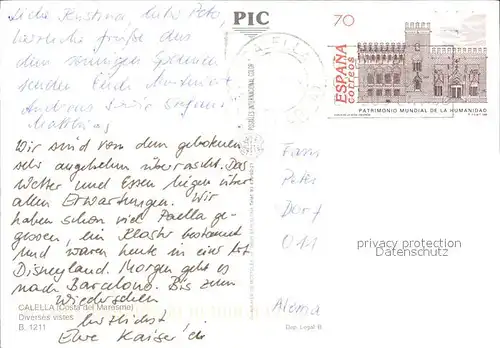 Liebe Kristina, lieber Peter,
herzliche Grüße aus
dem sonnigen Spanien
senden Euch
Andreas
Matthias
Wir sind von dem gebotenen
sehr angenehm überrascht. Das
Wetter und Essen liegen über
allen Erwartungen. Wir
haben schon viel Paella ge-
gessen, ein Kloster bestaunt
und waren heute in einer Art
Disneyland. Morgen geht es
nach Barcelona. Bis zum
Wiedersehen
herzlichst
Eure Kaiser's
CALELLA (Costa del Maresme)
Diverses vistes
B. 1211
PIC
POSTALES INTERNACIONAL COLOR
Dep. Legal B
CALELLA
70
ESPAÑA
correos
PATRIMONIO MUNDIAL DE LA HUMANIDAD
Fam
Peter
Dorf
011
Alema
privacy protection
Datenschutz